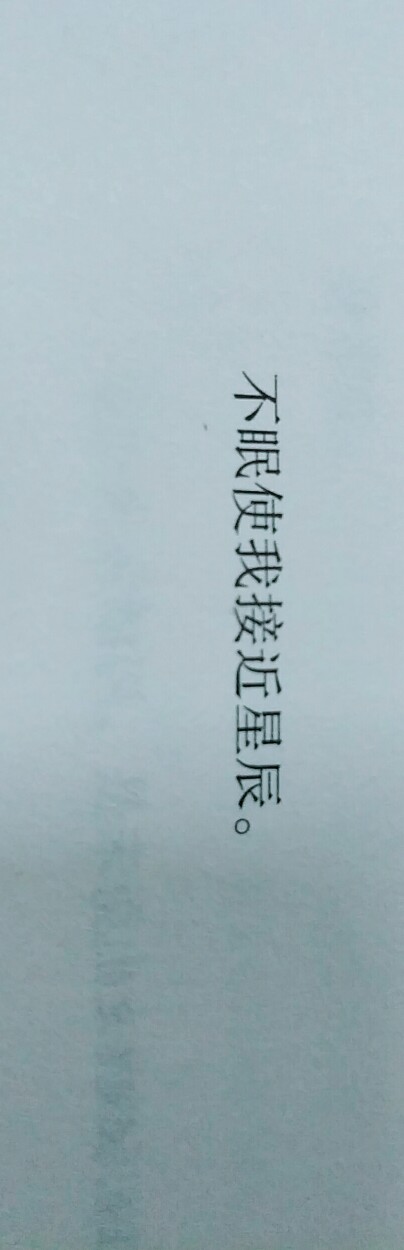 不眠使我接近星辰。